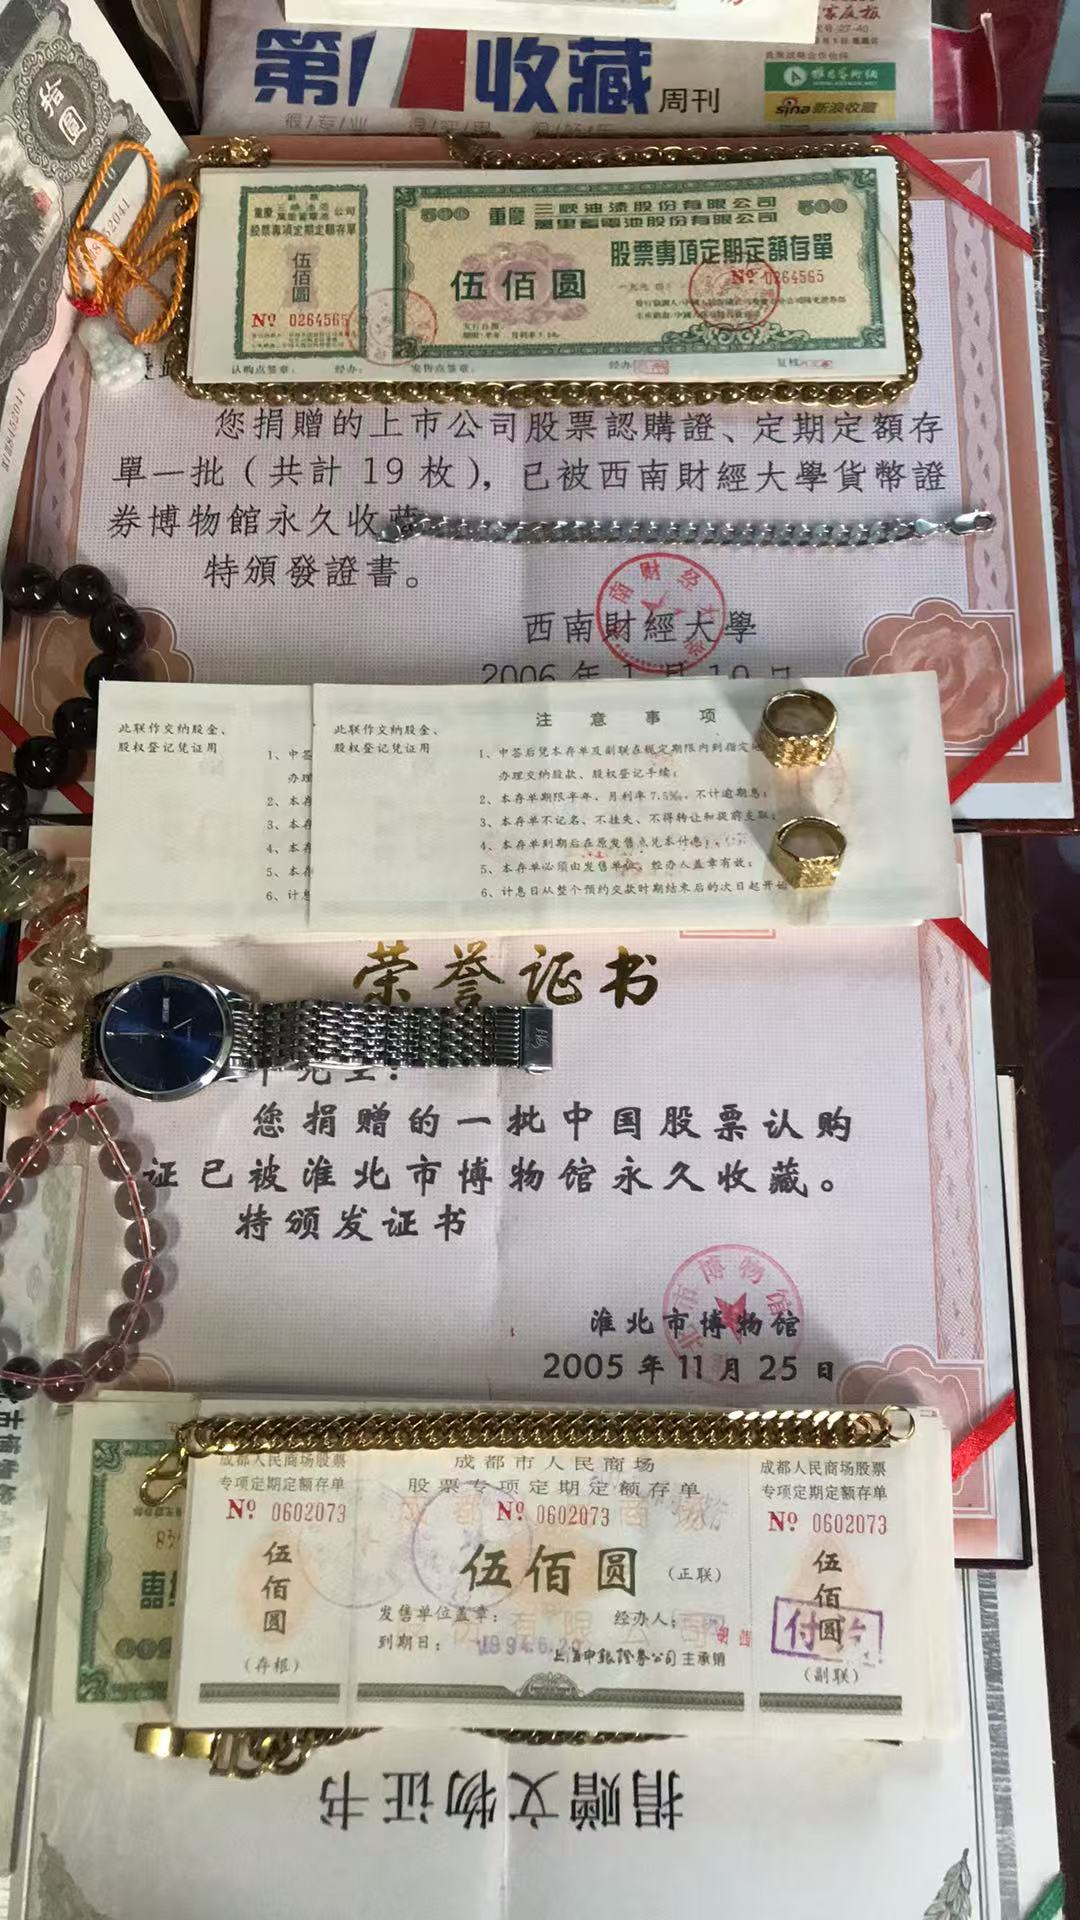 第1收藏 周刊
sina新浪收藏
拾圓
重慶 三峽油漆股份有限公司
萬里蓄電池股份有限公司
股票專項定期定額存單
500
500
伍佰圓
股票專項定期定額存單
伍佰圓
Nº 0264565
Nº 0264565
认购点签章：
经办：
发售点签章：
经办
复核
您捐贈的上市公司股票認購證、定期定額存
單一批（共計19枚），已被西南財經大學貨幣證
券博物館永久收藏
特頒發證書。
西南財經大學
2006年1月10日
此联作交纳股金、
股权登记凭证用
1、中签
办理
2、本存
3、本存
4、本存
5、本存
6、计息
此联作交纳股金、
股权登记凭证用
注意事项
1、中签后凭本存单及副联在规定期限内到指定地
办理交纳股款、股权登记手续；
2、本存单期限半年，月利率7.5‰，不计逾期息；
3、本存单不记名、不挂失、不得转让和提前支取；
4、本存单到期后在原发售点兑本付息；
5、本存单必须由发售单位、经办人盖章有效；
6、计息日从整个预约交款时期结束后的次日起开始
荣誉证书
先生：
您捐赠的一批中国股票认购
证已被淮北市博物馆永久收藏。
特颁发证书
淮北市博物馆
2005年11月25日
成都人民商场股票
专项定期定额存单
Nº 0602073
伍佰圆
(存根)
成都市人民商场
股票专项定期定额存单
Nº 0602073
伍佰圆 (正联)
发售单位盖章：
经办人：
到期日：
1994.6.20
上海申银證券公司主承销
成都人民商场股票
专项定期定额存单
Nº 0602073
伍佰圆
付
(副联)
捐赠文物证书